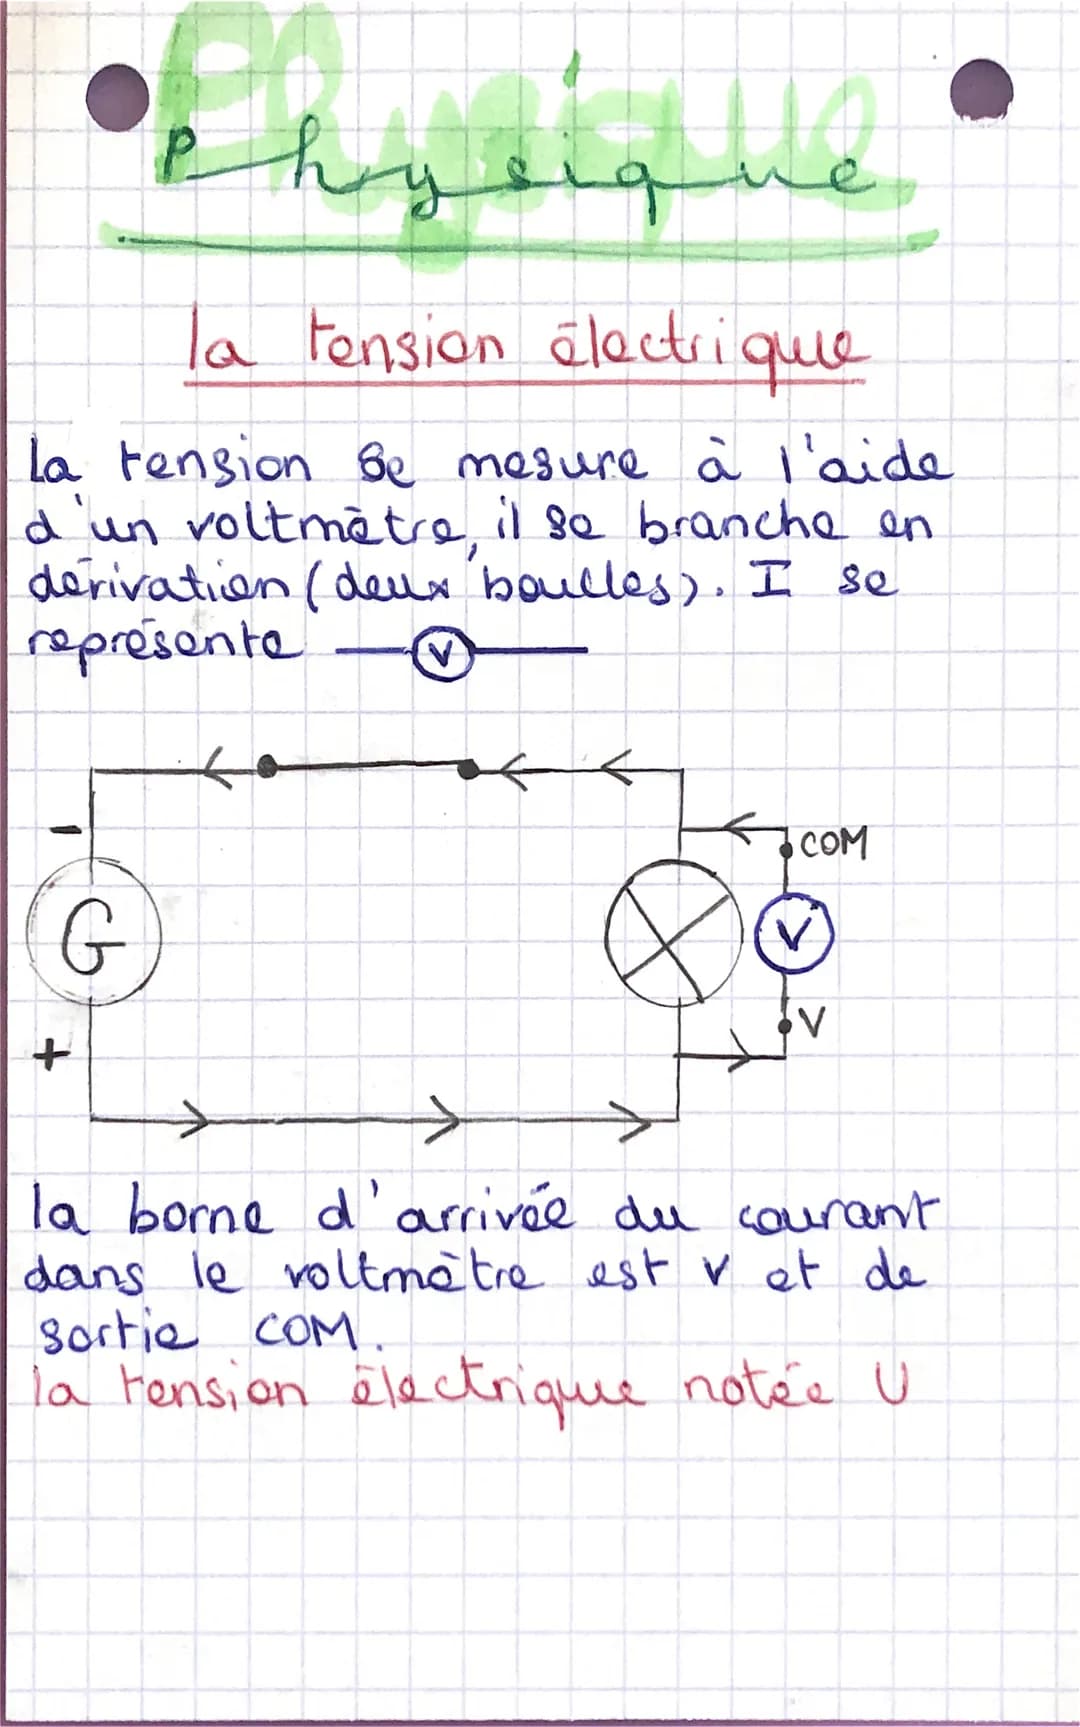 Physique
Physique
la tension électrique
La tension se mesure à l'aide
d'un voltmètre, il se branche en
dérivation (deux boucles). I se
représente V
-
COM
G
V
V
+
la borne d'arrivée du courant
dans le voltmètre est V et de
sortie COM.
la tension électrique notée U